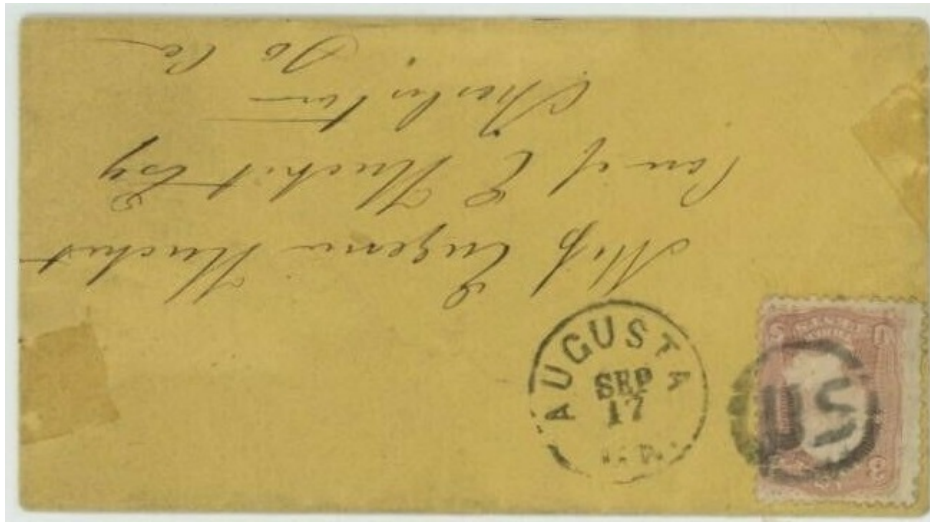 Miss Eugenia Huchet
Care of E Huchet Esq
Charleston
So Ca
AUGUSTA
SEP
17
US